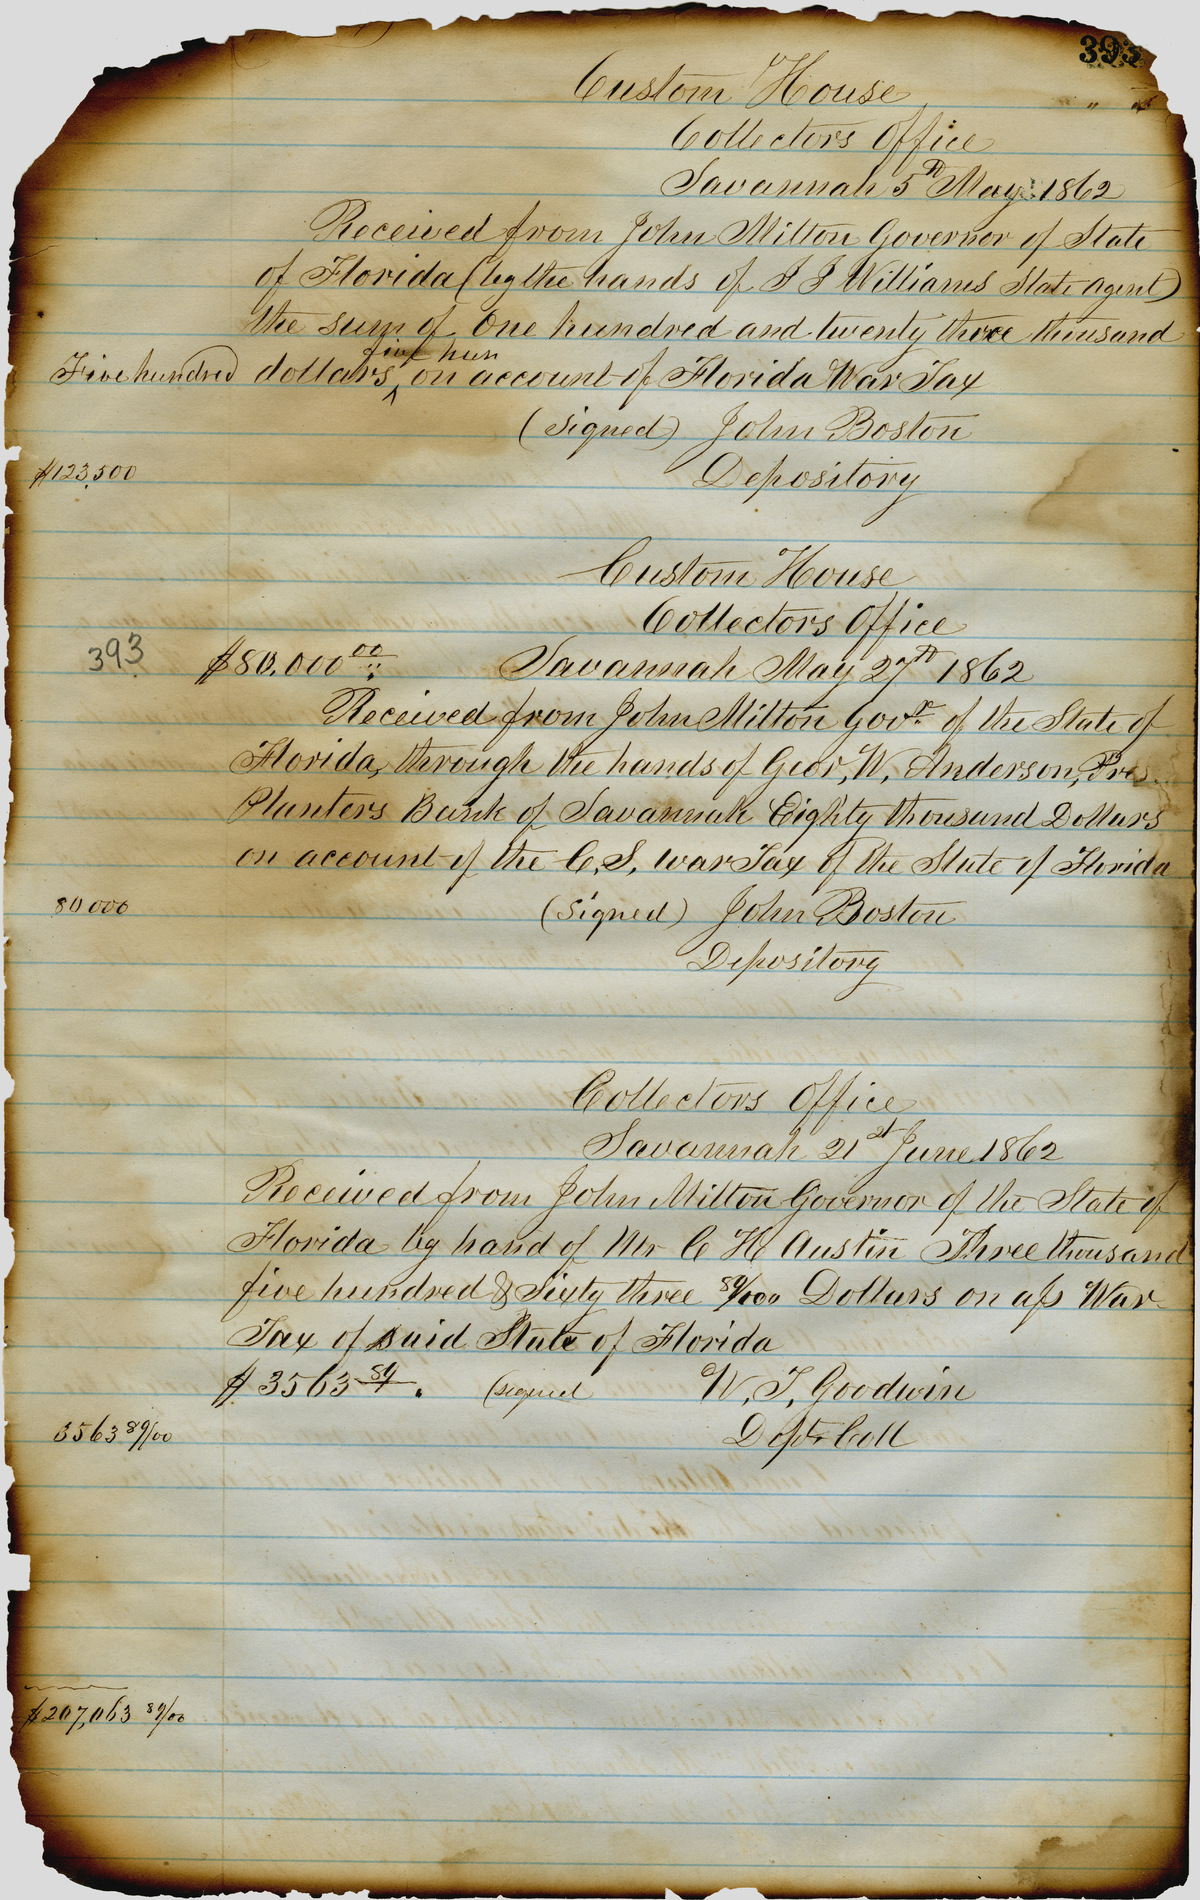 393
Custom House
Collectors Office
Savannah 5th May 1862
Received from John Milton Governor of State
of Florida (by the hands of J J Williams State Agent)
the sum of One hundred and twenty three thousand
five hun
Five hundred dollars, on account of Florida War Tax
(Signed) John Boston
$123,500 Depository
Custom House
Collectors Office
393 $80,000 00 Savannah May 27th 1862
Received from John Milton Govr. of the State of
Florida, through the hands of Geor, W, Anderson, Pres
Planters Bank of Savannah Eighty thousand Dollars
on account of the C, S, War Tax of the State of Florida
80000 (Signed) John Boston
Depository
Collectors Office
Savannah 21st June 1862
Received from John Milton Governor of the State of
Florida by hand of Mr C H Austin Three thousand
five hundred & Sixty three 89/100 Dollars on a/c War
Tax of Said State of Florida
$ 3563 89. (signed W, T, Goodwin
3563 89/100 Dept. Coll
$207,063 89/00